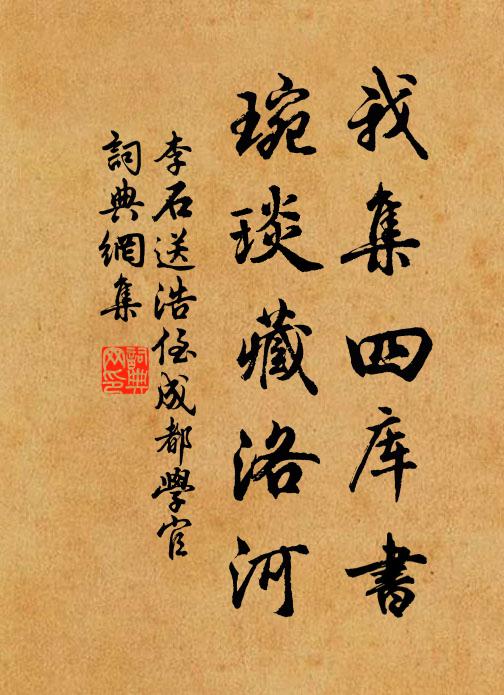 我集四库書
琬琰藏洛河
李石送浩侄成都學官
詞典網集
詞典网印